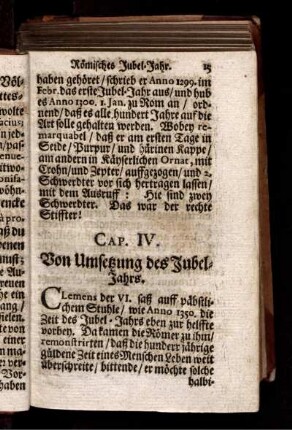 Römisches Jubel-Jahr. 15
haben gehöret/ schrieb er Anno 1299. im
Febr. das erste Jubel-Jahr aus/ und hub
es Anno 1300. 1. Jan. zu Rom an/ ord-
nend/ daß es alle hundert Jahr auf die
Art solle gehalten werden. Wobey re-
marquabel/ daß er am ersten Tage in
Seide/ Purpur/ und härinen Kappe/
am andern in Käyserlichen Ornat, mit
Crohn/ und Zepter/ auffgezogen/ und 2.
Schwerdter vor sich hertragen lassen/
mit dem Ausruff: Hie sind zwey
Schwerdter. Das war der rechte
Stiffter!
CAP. IV.
Von Umsetzung des Jubel-
Jahrs.
CLemens der VI. saß auff päbstli-
chem Stuhle/ wie Anno 1350. die
Zeit des Jubel-Jahrs eben zur helffte
vorbey. Da kamen die Römer zu ihm/
remonstrirten/ daß die hundert jährige
güldene Zeit eines Menschen Leben weit
überschreite/ bittende/ er möchte solche
halbi-